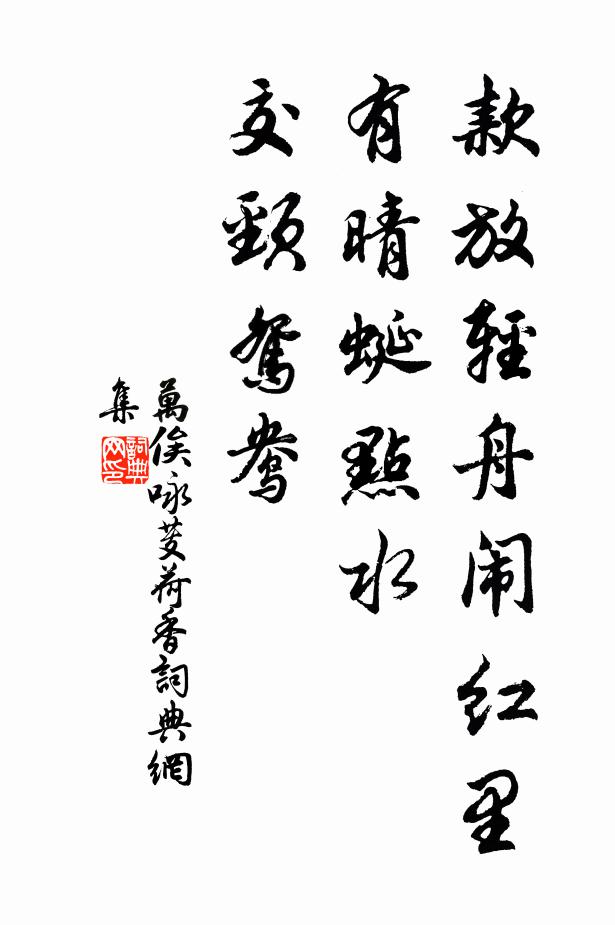 款放輕舟闹红里
有晴蜓點水
交頸鴛鴦
萬俟咏芰荷香詞典網
集
詞典
网印